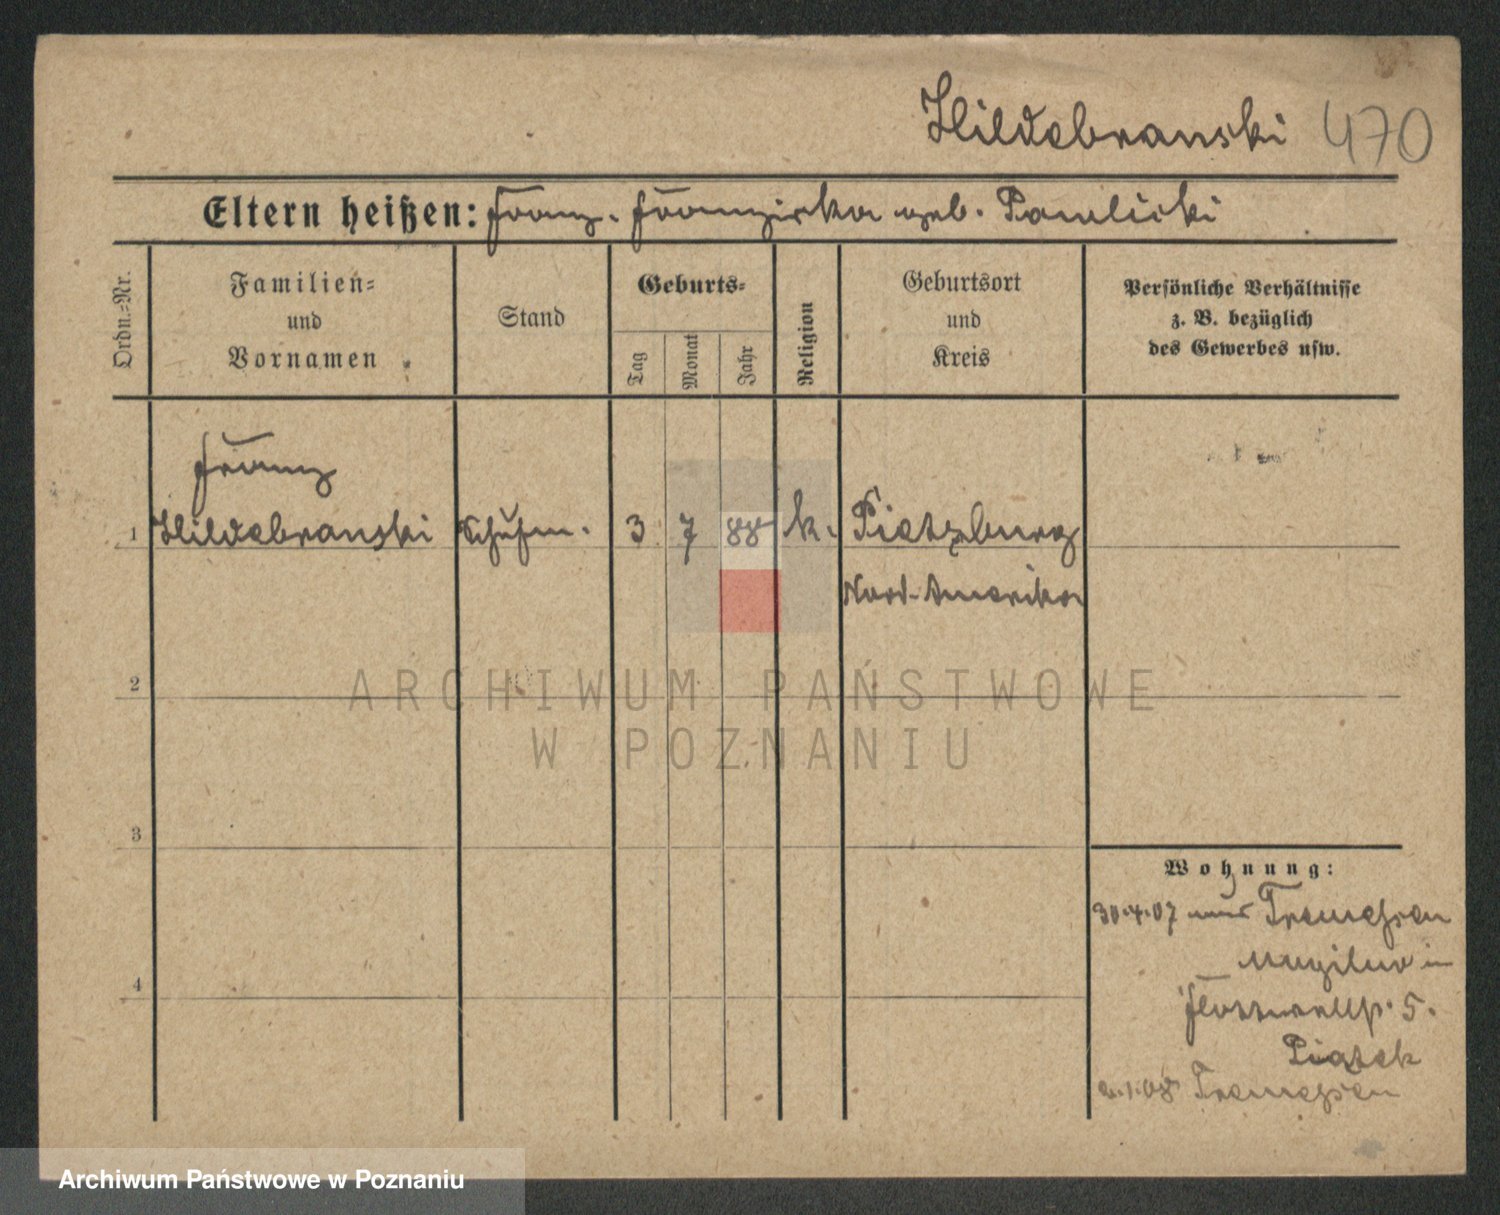 Hildebranski 470
Eltern heißen: Franz. Franziska geb. Pawlicki
Ordn.-Nr.
Familien-
und
Vornamen
Stand
Geburts-
Tag
Monat
Jahr
Religion
Geburtsort
und
Kreis
Persönliche Verhältnisse
z. B. bezüglich
des Gewerbes usw.
Franz
1 Hildebranski Schuhm. 3 7 88 k. Pietzburg
Nord-Amerika
2
ARCHIWUM PAŃSTWOWE
W POZNANIU
3
4
Wohnung:
30.4.07 aus Tremessen
Mogilno in
5.
Piątek
1.08 Tremessen
Archiwum Państwowe w Poznaniu